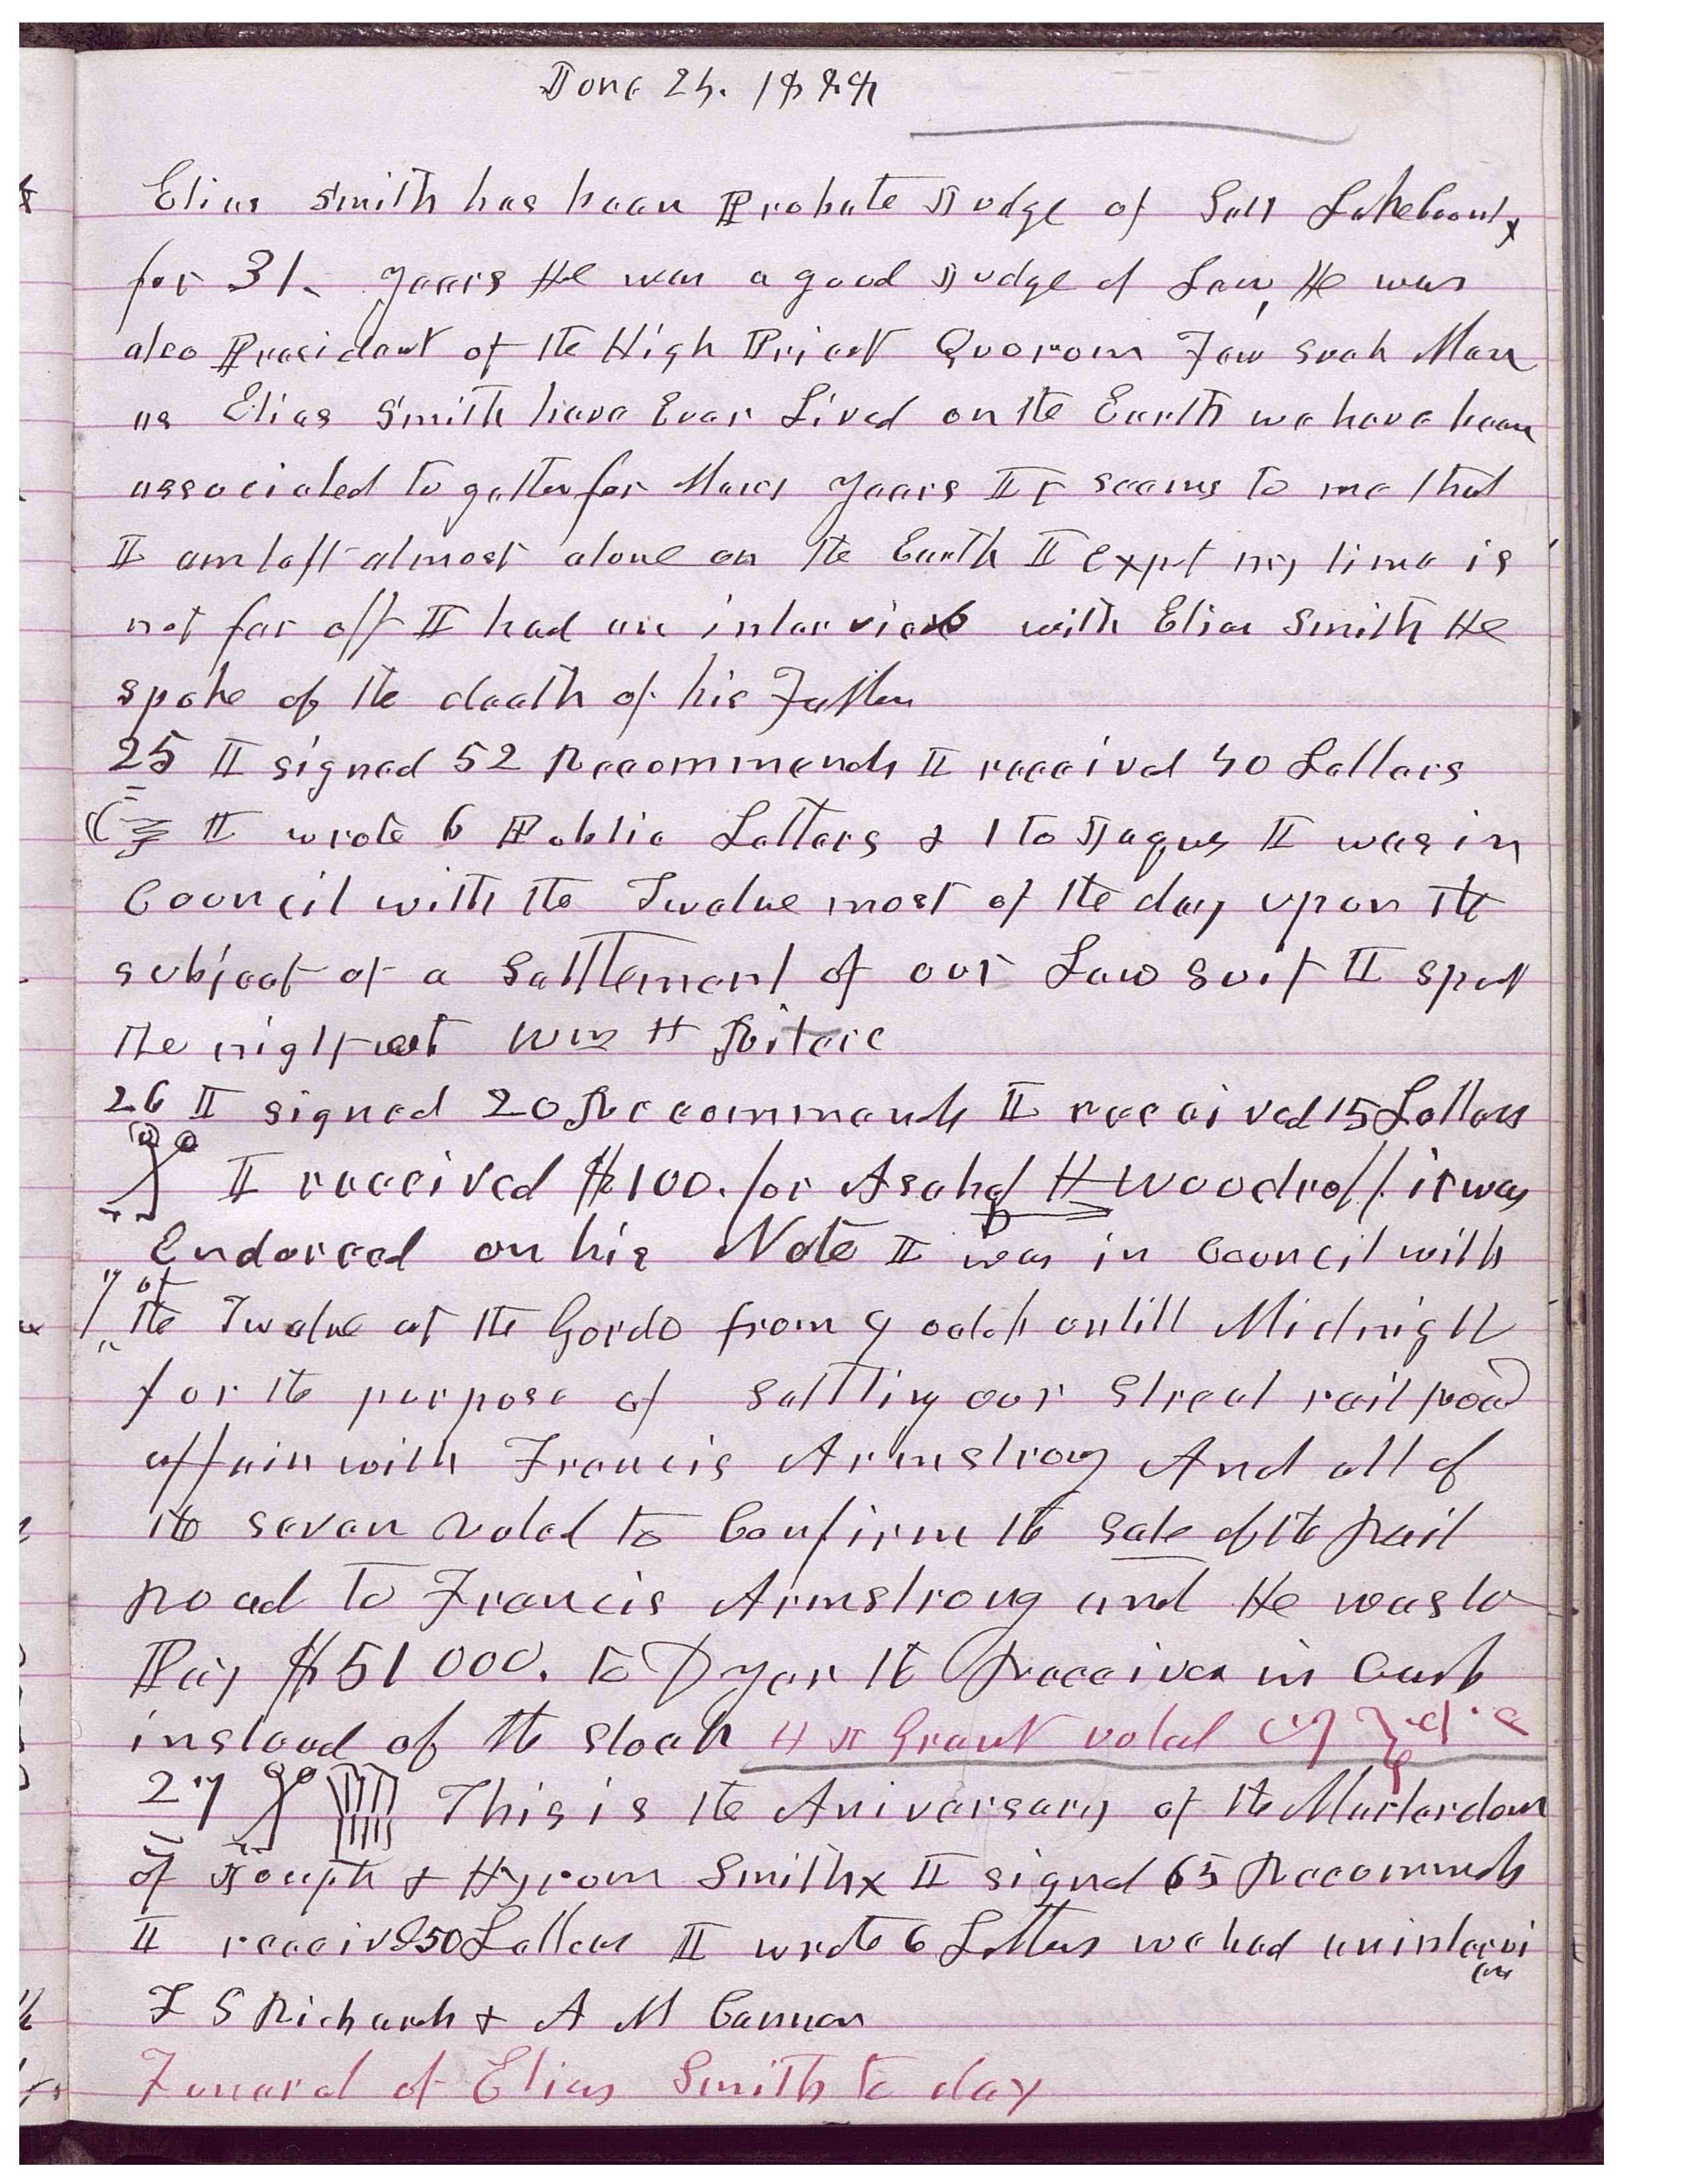 June 24. 1888
Elias Smith has been Probate Judge of Salt Lake County
for 31. years He was a good Judge of Law, He was
also President of the High Priest Quorum Few such Men
as Elias Smith have Ever Lived on the Earth we have been
associated to gether for Many years It seems to me that
I am left almost alone on the Earth I Expet my time is
not far off I had an interview with Elias Smith He
spoke of the death of his Father
25 I signed 52 Recommends I received 40 Letters
I wrote 6 Public Letters & 1 to Jaques I was in
Council with the Twelve most of the day upon the
subject of a Settlement of our Law suit I spet
the night at Wm H
26 I signed 20 Recommends I received 15 Letters
I received $100. for Asahel H Woodruff it was
Endorced on his Note I was in Council with
the Twelve at the Gardo from 7 oclok untill Midnight
for the purpose of settling our Street rail road
affair with Francis Armstrong And all of
the seven voted to Confirm the sale of the Rail
Road to Francis Armstrong and He was to
Pay $51000. to Dyer the Receiver in Cash
instead of the stock H J Grant voted
27 This is the Aniversary of the Marterdom
of Joseph & Hyrum Smith x I signed 65 Recommends
I receivd 50 Letters I wrote 6 Letters we had an intervi
ew
F S Richards & A M Cannon
Funeral of Elias Smith to day